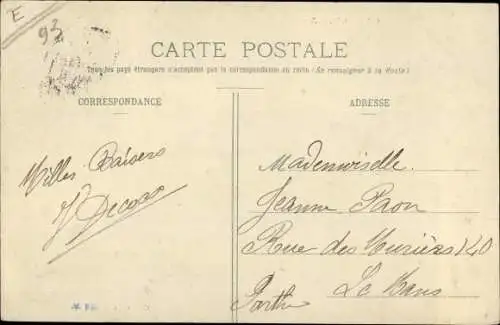 E
93
CARTE POSTALE
Tous les pays étrangers n'acceptent pas la correspondance au recto (Se renseigner à la Poste)
CORRESPONDANCE
ADRESSE
Milles Baisers
Mademoiselle
Jeanne Paon
Rue des Muriers 140
Le Mans
Sarthe